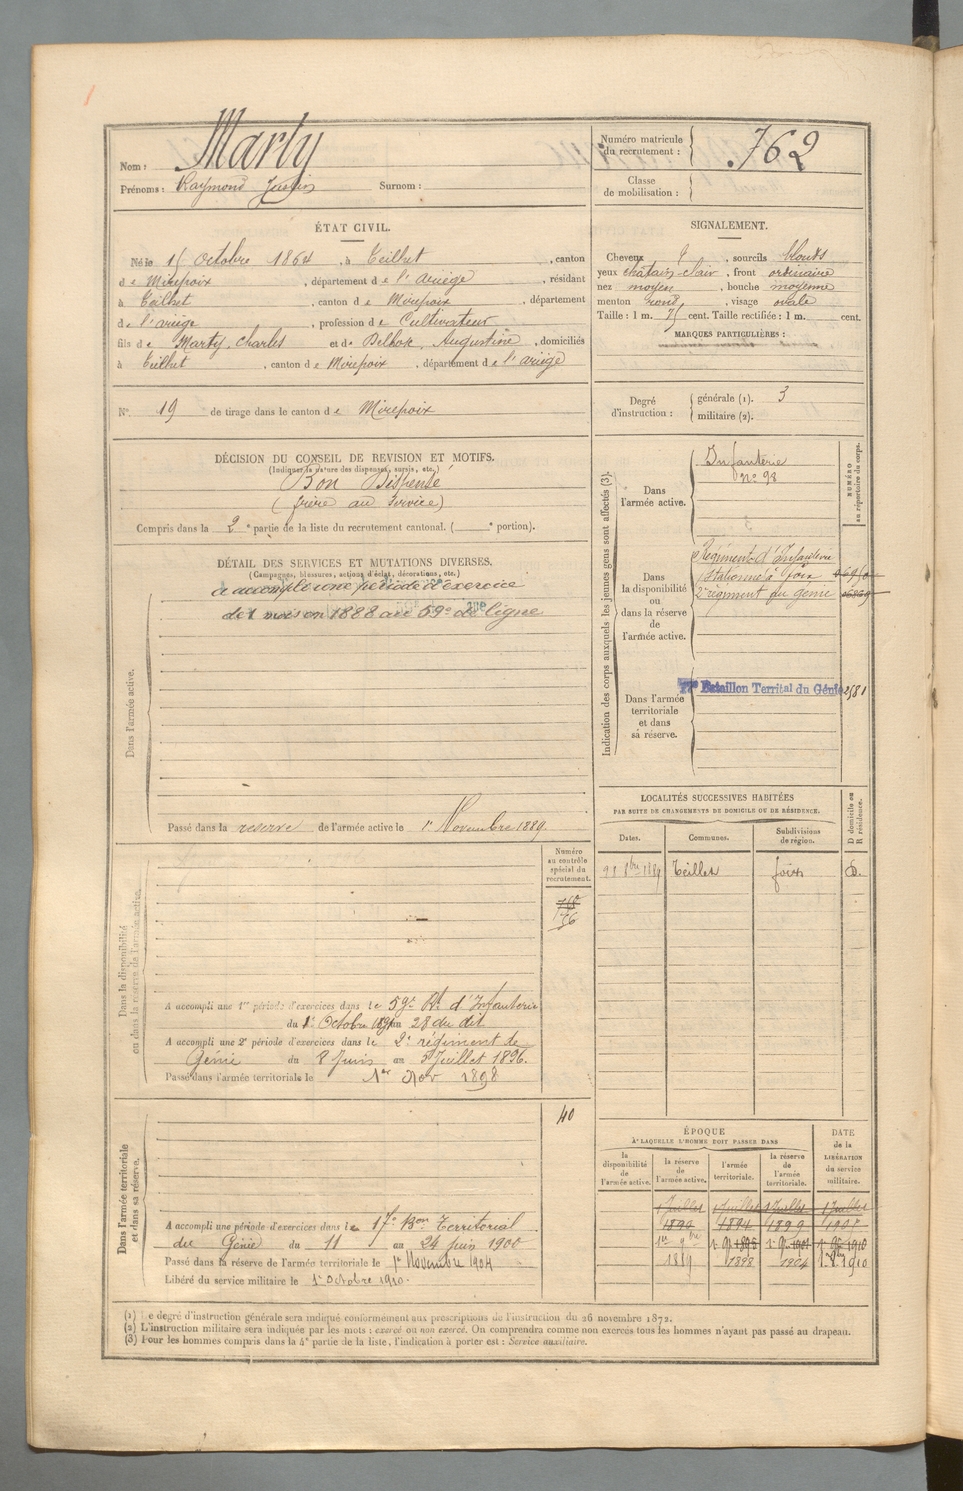 Nom : Marty
Prénoms : Raymond Surnom :
Numéro matricule
du recrutement : 762
Classe
de mobilisation :
ÉTAT CIVIL.
Né le Octobre 1864, à Teilhet, canton
de Mirepoix, département de l'ariège, résidant
à Teilhet, canton de Mirepoix, département
de l'ariège, profession de Cultivateur
fils de Marty, Charles et de Augustine, domiciliés
à Teilhet, canton de Mirepoix, département de l'ariège
N° 19 de tirage dans le canton de Mirepoix
SIGNALEMENT.
Cheveux, sourcils blonds
yeux châtain-clair, front ordinaire
nez moyen, bouche moyenne
menton rond, visage ovale
Taille : 1 m. cent. Taille rectifiée : 1 m. cent.
MARQUES PARTICULIÈRES :
Degré
d'instruction :
générale (1). 3
militaire (2).
DÉCISION DU CONSEIL DE REVISION ET MOTIFS.
(Indiquer la nature des dispenses, sursis, etc.)
Bon Dispensé
(frère au service)
Compris dans la 2e partie de la liste du recrutement cantonal. ( e portion).
DÉTAIL DES SERVICES ET MUTATIONS DIVERSES.
(Campagnes, blessures, actions d'éclat, décorations, etc.)
a accompli une période d'exercice
de 1 mois en 1888 au 59e de ligne
Dans l'armée active.
Passé dans la réserve de l'armée active le 1er Novembre 1889.
Indication des corps auxquels les jeunes gens sont affectés (3).
Dans
l'armée active.
Infanterie
n° 98
NUMÉRO
au répertoire du corps.
Dans
la disponibilité
ou
dans la réserve
de
l'armée active.
Régiment d'Infanterie
Stationné à Foix
2e régiment du génie
Dans l'armée
territoriale
et dans
sa réserve.
17e Bataillon Territal du Génie
LOCALITÉS SUCCESSIVES HABITÉES
PAR SUITE DE CHANGEMENTS DE DOMICILE OU DE RÉSIDENCE.
Dates. Communes. Subdivisions
de région.
D domicile ou
R résidence.
Teilhet Foix D.
Numéro
au contrôle
spécial du
recrutement.
Dans la disponibilité
ou dans la réserve de l'armée active.
A accompli une 1re période d'exercices dans le 59e Rt d'Infanterie
du 1er Octobre 1891 au 28 du dit
A accompli une 2e période d'exercices dans le 2e régiment de
Génie du 8 Juin au 5 Juillet 1896.
Passé dans l'armée territoriale le 1er Nov 1898
40
Dans l'armée territoriale
et dans sa réserve.
A accompli une période d'exercices dans le 17e Bon Territorial
du Génie du 11 au 24 juin 1900
Passé dans la réserve de l'armée territoriale le 1er Novembre 1904
Libéré du service militaire le 1er Octobre 1910.
ÉPOQUE
À LAQUELLE L'HOMME DOIT PASSER DANS
DATE
de la
LIBÉRATION
du service
militaire.
la
disponibilité
de
l'armée active.
la réserve
de
l'armée active.
l'armée
territoriale.
la réserve
de
l'armée
territoriale.
1 Juillet 1 Juillet 1 Juillet 1 Juillet
1894 1899
1910
1889 1898 1904 1910
(1) Le degré d'instruction générale sera indiqué conformément aux prescriptions de l'instruction du 26 novembre 1872.
(2) L'instruction militaire sera indiquée par les mots : exercé ou non exercé. On comprendra comme non exercés tous les hommes n'ayant pas passé au drapeau.
(3) Pour les hommes compris dans la 4e partie de la liste, l'indication à porter est : Service auxiliaire.